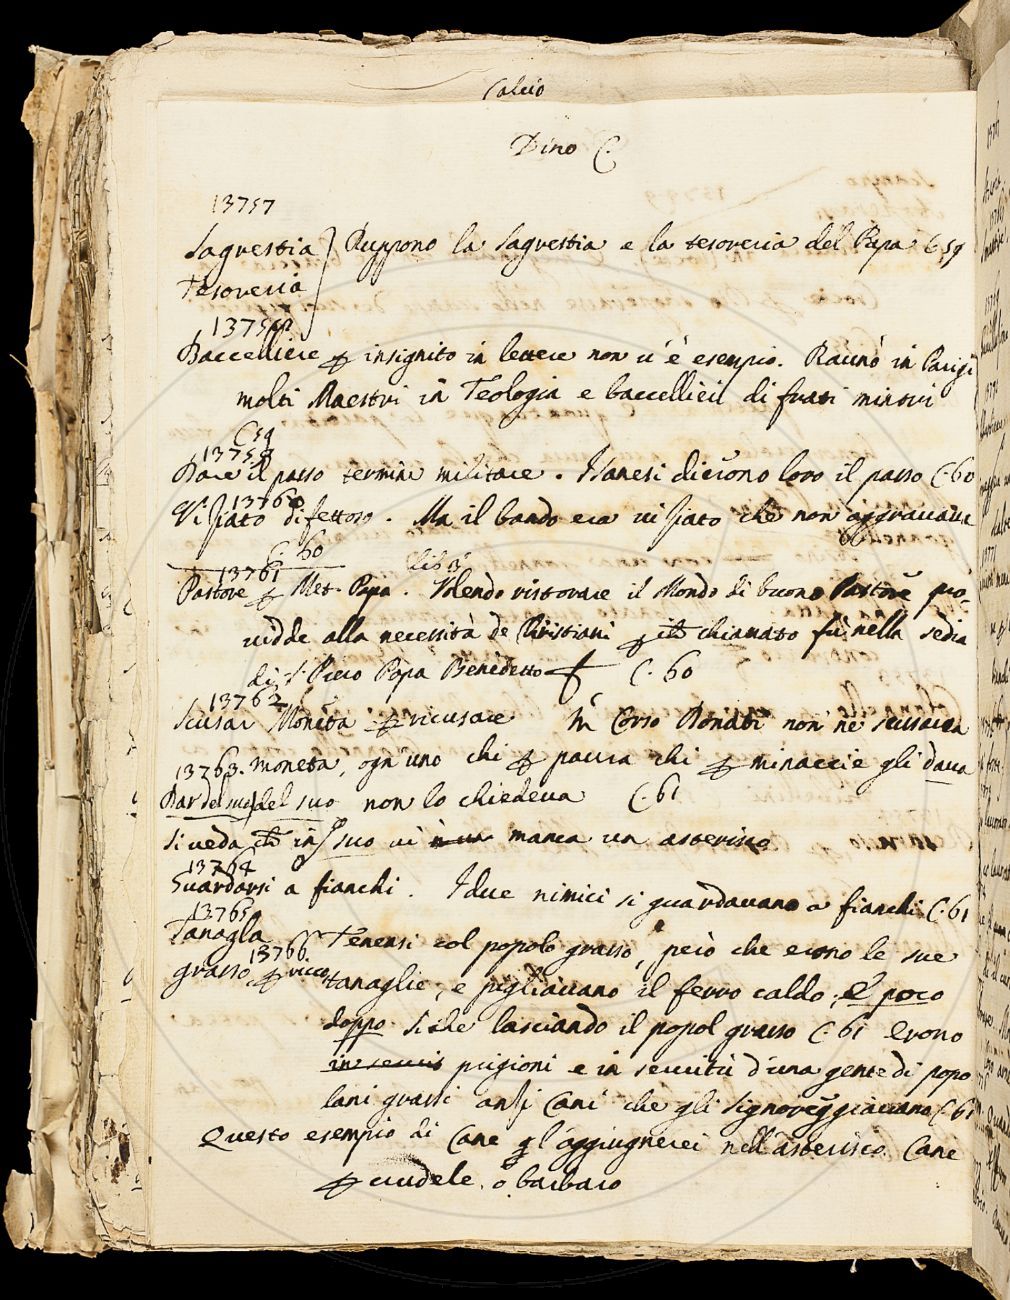 Calcio
Dino C.
13757
Sagrestia } Ruppono la Sagrestia e la tesoreria del Papa C 59
Tesoreria
13758
Baccelliere insignito in lettere non v'è esempio. Raunò in Parigi
molti Maestri in Teologia e baccellieri di frati minori
C 59
13759
Dare il passo termine militare. I sanesi dierono loro il passo C. 60
13760
Viziato difettoso. Ma il bando era viziato che non aggravava
C. 60
13761 lib 3
Pastore Met. Papa. Volendo ristorare il Mondo di buono Pastore pro
vidde alla necessità de Christiani chiamato fù nella sedia
di S. Piero Papa Benedetto C. 60
13762
Scusar Moneta ricusare M Corso Donati non ne scusava
13763. moneta, ogn'uno chi paura chi minaccie gli dava
Dar del suo del suo non lo chiedeva C. 61
Si veda in suo vi manca un asterisco
13764
Guardarsi a fianchi. I due nimici si guardavano a fianchi C. 61
13765
Tanagla Tenensi col popolo grasso, però che erono le sue
13766
grasso ricco tanaglie, e pigliavano il ferro caldo, E poco
doppo. Si che lasciando il popol grasso C. 61 Erono
in servis prigioni e in servitù d'una gente di popo
lani grassi anzi Cani che gli signoreggiavano C. 61
Questo esempio di Cane gl'aggiugnerei nell'asterisco Cane
crudele, o barbaro